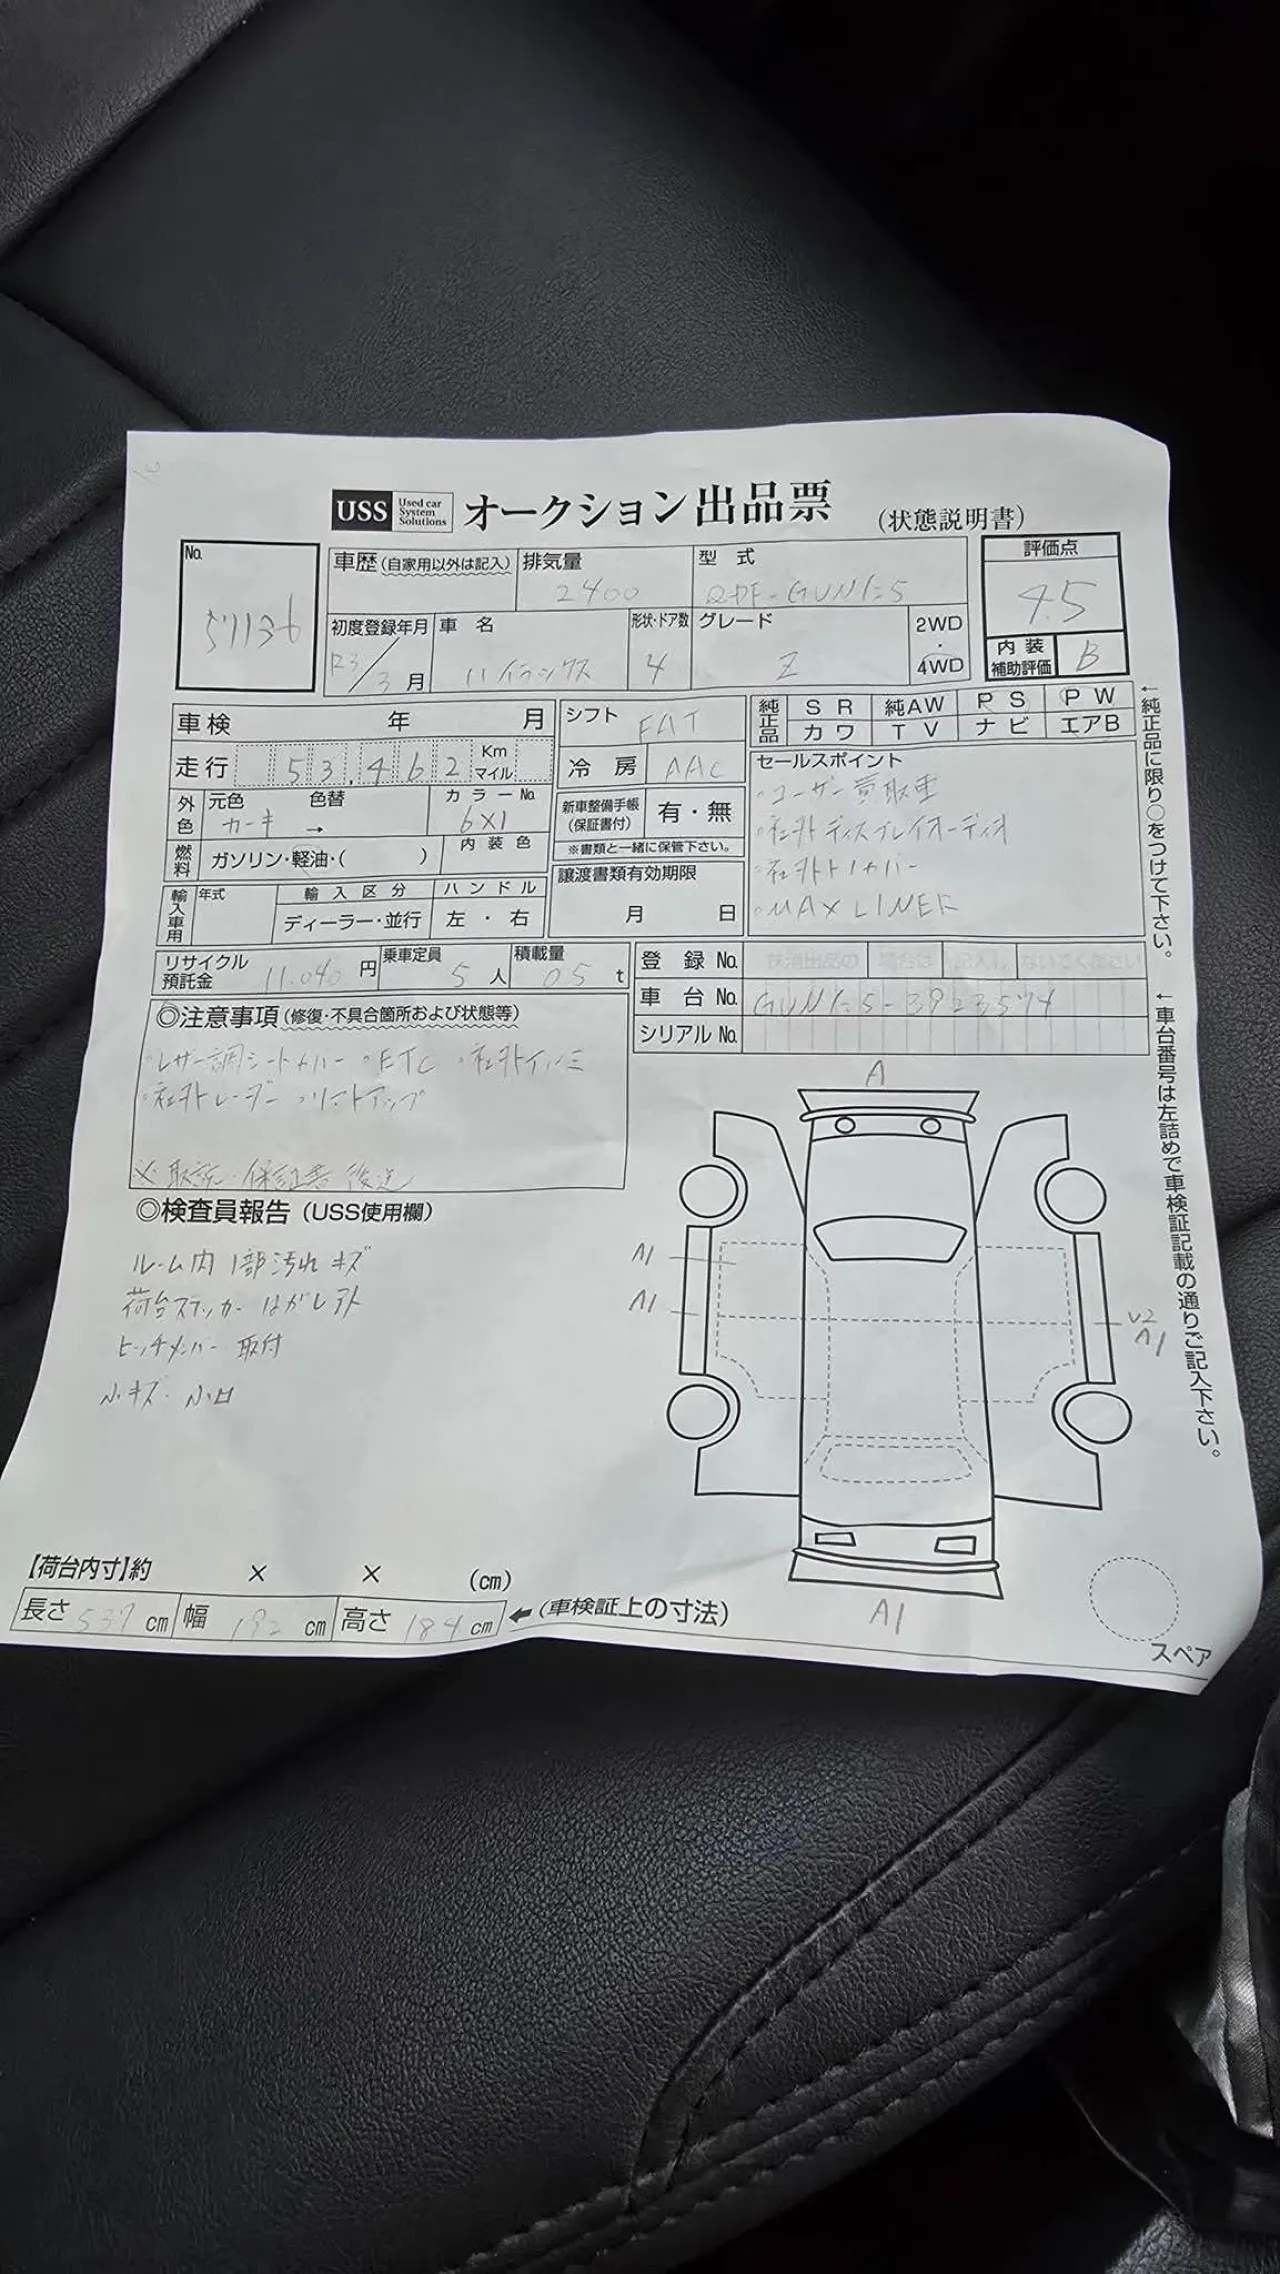 USS Used car System Solutions オークション出品票 (状態説明書)
No. 51136
車歴 (自家用以外は記入) 排気量 2400 型式 QDF-GUN125 評価点 4.5
初度登録年月 R3/3月 車名 ハイラックス 形状・ドア数 4 グレード Z 2WD・4WD 内装補助評価 B
車検 年 月 シフト FAT 純正品 SR 純AW PS PW
カワ TV ナビ エアB
走行 53,462 Km マイル 冷房 AAC
セールスポイント
・ユーザー買取車
・社外ディスプレイオーディオ
・社外トノカバー
・MAXLINER
外色 元色 カーキ 色替 → カラーNo. 6X1 新車整備手帳(保証書付) 有・無
※書類と一緒に保管下さい。
燃料 ガソリン・軽油・( ) 内装色
輸入車用 年式 輸入区分 ディーラー・並行 ハンドル 左・右 譲渡書類有効期限 月 日
リサイクル預託金 11,040円 乗車定員 5人 積載量 0.5t
登録No. 抹消出品の 場合は 記入し ないでください
車台No. GUN125-3923574
シリアルNo.
←純正品に限り○をつけて下さい。
←車台番号は左詰めで車検証記載の通りご記入下さい。
◎注意事項(修復・不具合箇所および状態等)
・レザー調シートカバー ・ETC ・社外アルミ
・社外レーダー ・リフトアップ
※取説・保証書 後送
◎検査員報告(USS使用欄)
ルーム内 1部汚れ キズ
荷台ステッカーはがしアト
ヒッチメンバー 取付
小キズ・小凹
A
A1
A1
U2
A1
A1
スペア
【荷台内寸】約 × × (cm)
長さ 537 cm 幅 192 cm 高さ 184 cm ←(車検証上の寸法)